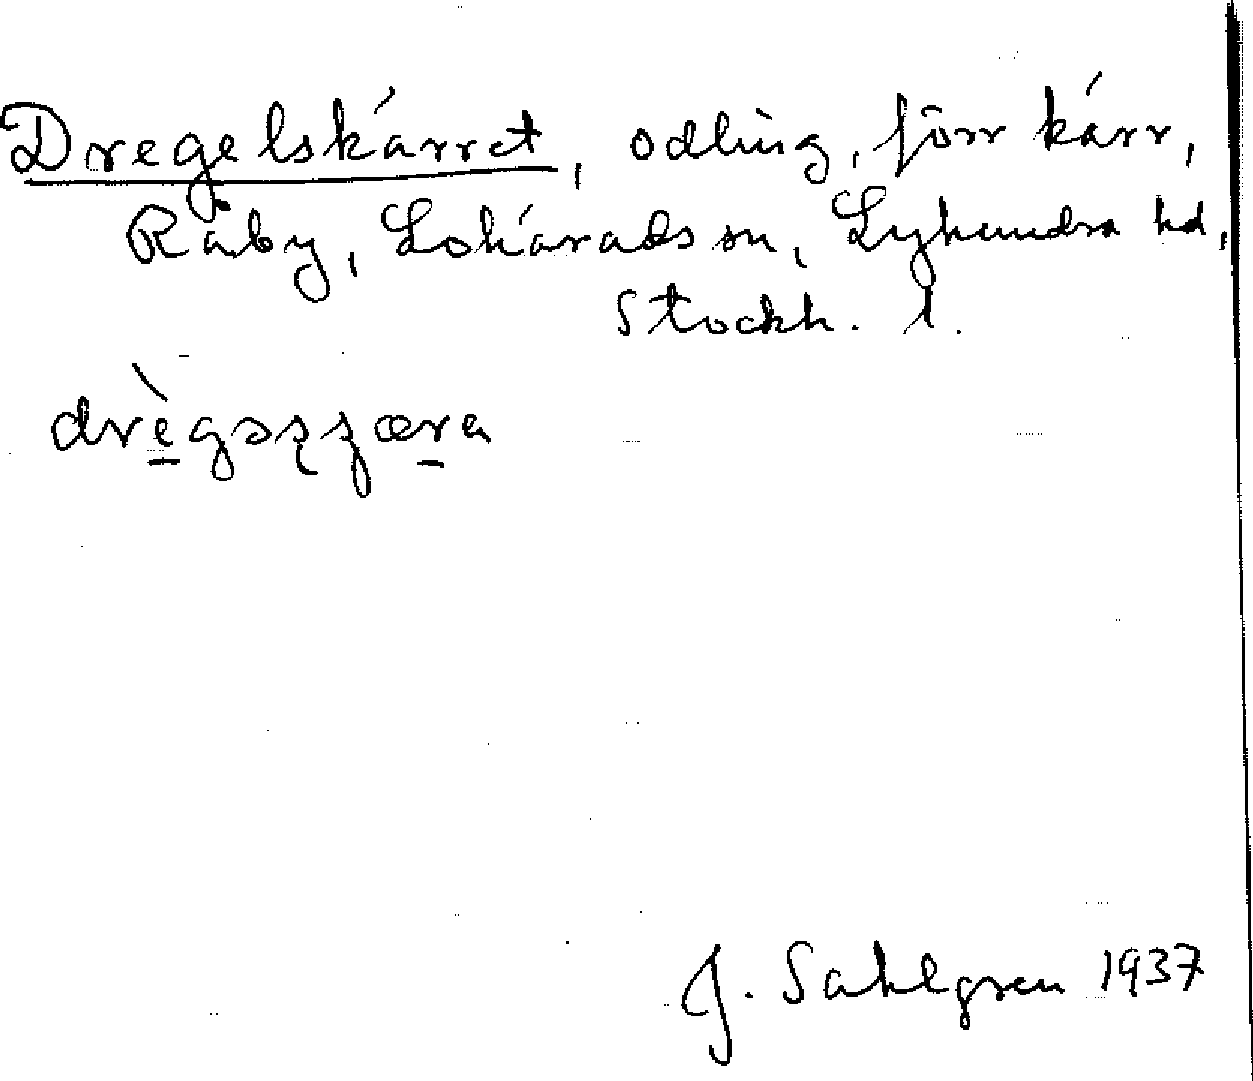 Dregelskärret, odling, förr kärr,
Råby, Lohärads sn, Lyhundra hd,
Stockh. l.
J. Sahlgren 1937